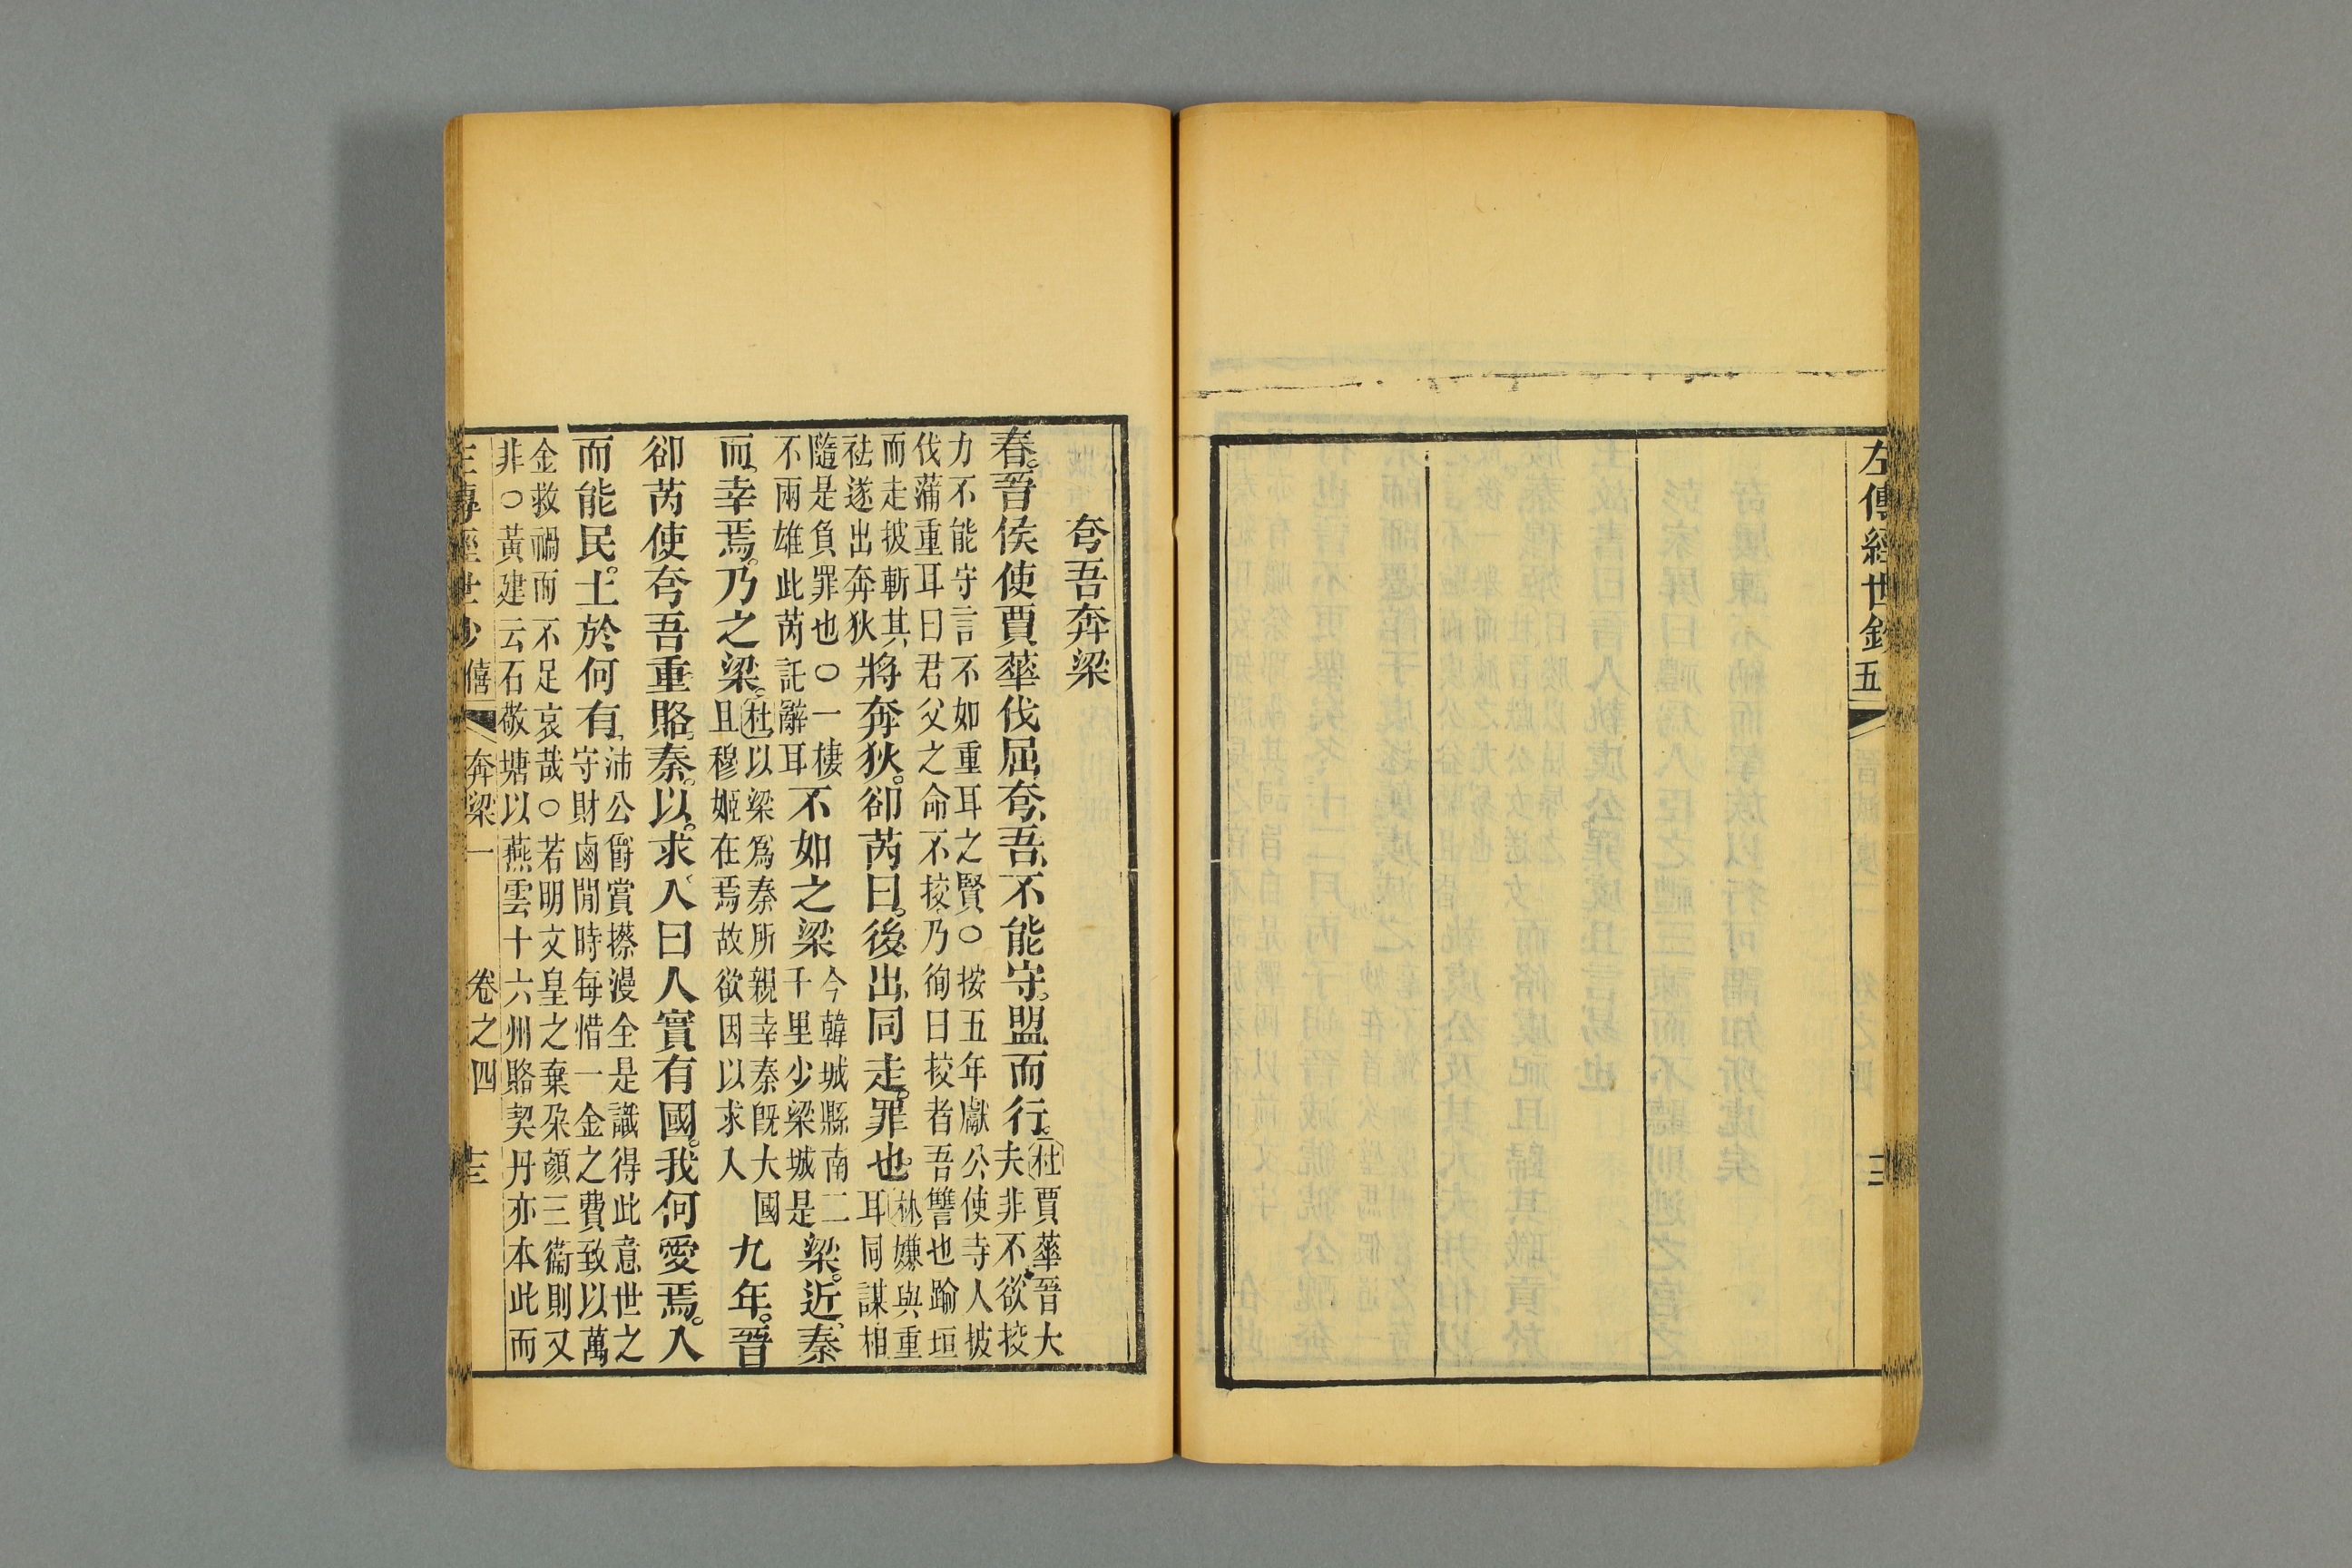 左傳經世鈔 五
夸吾奔梁
春晉侯使賈華伐屈夸吾不能守盟而行
杜賈華晉大
夫非不欲挍
力不能守言不如重耳之賢○按五年獻公使寺人披
伐蒲重耳曰君父之命不挍乃徇曰挍者吾讐也踰垣
而走披斬其
祛遂出奔狄
將奔狄郤芮曰後出同走罪也
林嫌與重
耳同謀相
隨是負罪也○一棲
不兩雄此芮託辭耳
不如之梁
今韓城縣南二
十里少梁城是
梁近秦
而幸焉乃之梁
杜以梁爲秦所親幸秦旣大國
且穆姬在焉故欲因以求入
九年晉
郤芮使夸吾重賂秦以求入曰人實有國我何愛焉入
而能民土於何有
沛公爵賞撒漫全是識得此意世之
守財鹵閒時每惜一金之費致以萬
金救禍而不足哀哉○若明文皇之棄朶顔三衞則又
非○黃建云石敬塘以燕雲十六州賂契丹亦本此而
左傳經世鈔 僖 奔梁一 卷之四